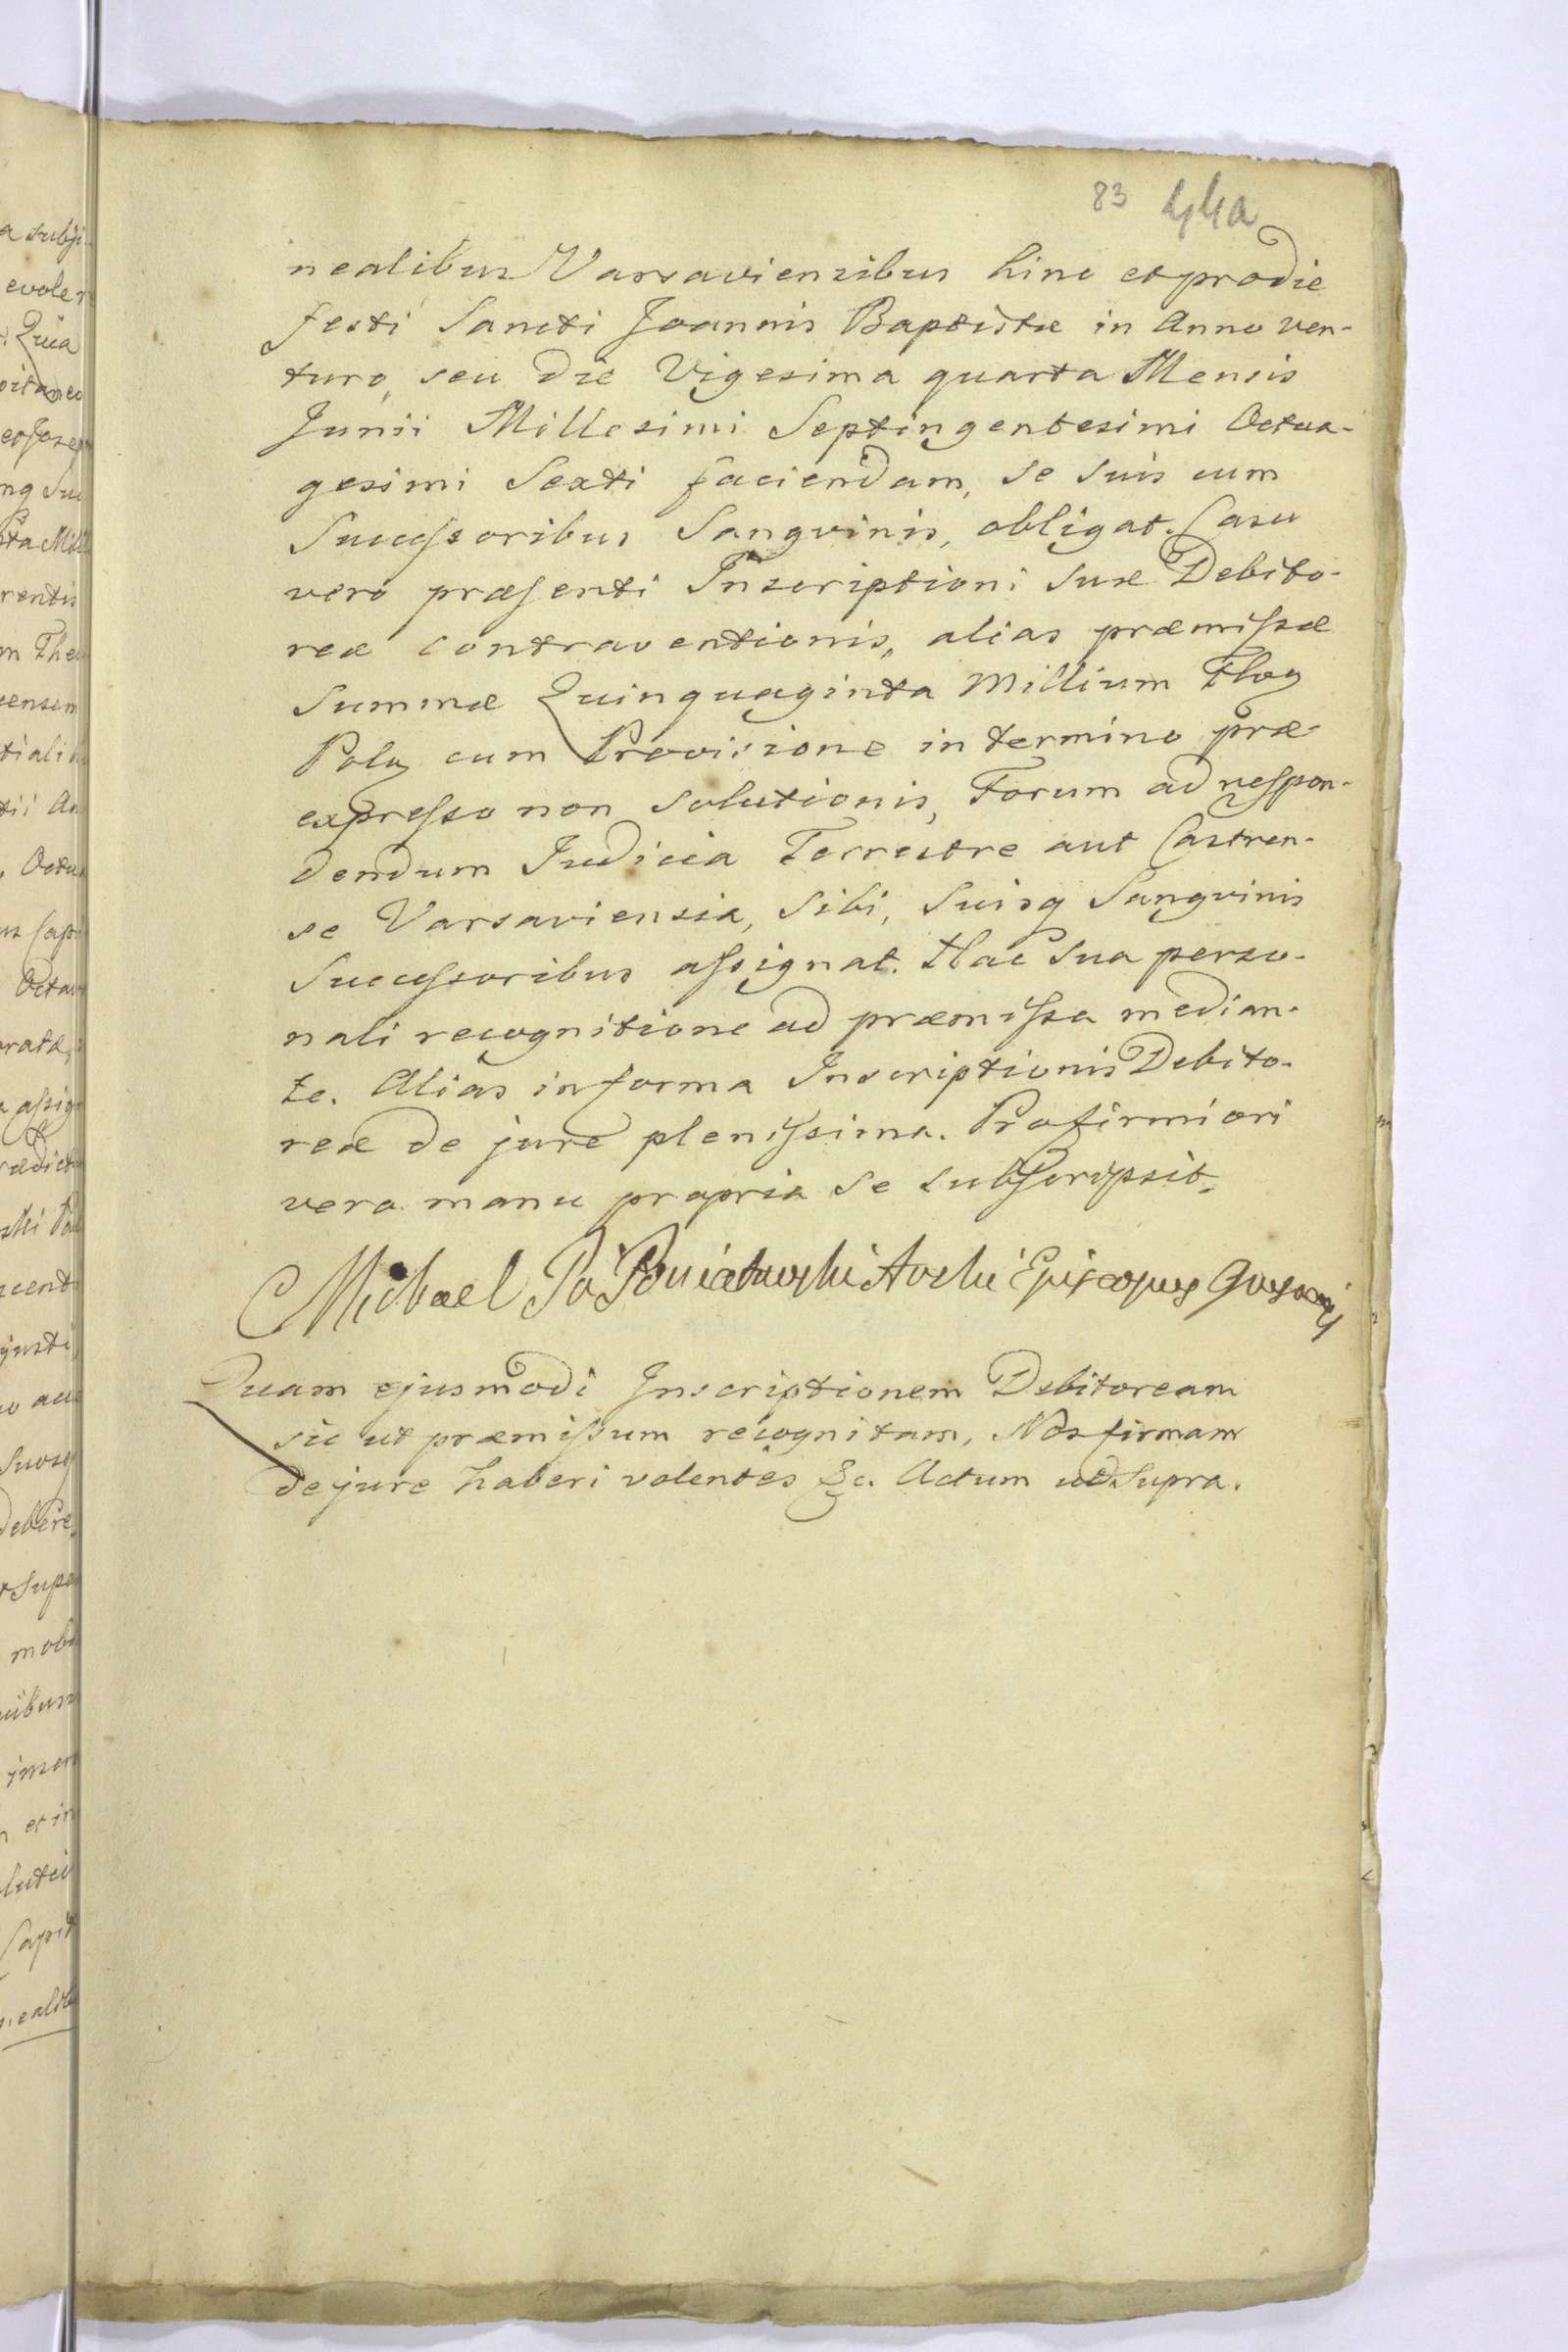 83 44a
nealibus Varsaviensibus hinc et pro die
festi Sancti Joannis Baptistæ in Anno ven-
turo, seu die Vigesima quarta Mensis
Junii Millesimi Septingentesimi Octua-
gesimi Sexti faciendam, se suis cum
Successoribus Sangvinis, obligat. Casu
vero præsenti Inscriptioni suæ Debito-
reæ contraventionis, alias præmissæ
Summæ Quinquaginta Millium Flog
Polg cum Provisione in termino præ-
expresso non solutionis, Forum ad respon-
dendum Judicia Terrestre aut Castren-
se Varsaviensia, Sibi, Suisq Sangvinis
Successoribus assignat. Hac Sua perso-
nali recognitione ad præmissa median-
te. Alias in forma Inscriptionis Debito-
reæ de jure plenissima. Pro firmiori
vero manu propria se subscripsit.
Michael Poniatowski Episcopus
Quam ejusmodi Inscriptionem Debitoream
sic ut præmissum recognitam, Nos firmam
de jure haberi volentes &c. Actum ut Supra.